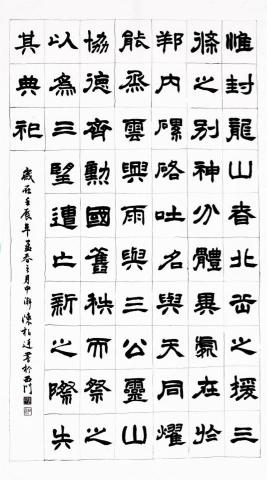 惟封龍山者北岳之援三
條之別神分體異處在於
邦内磥硌吐名與天同燿
能烝雲興雨與三公靈山
協德齊勳國舊秩而祭之
以為三望遭亡新之際失
其典祀
歲在壬辰年孟春之月中澣陳書於西門